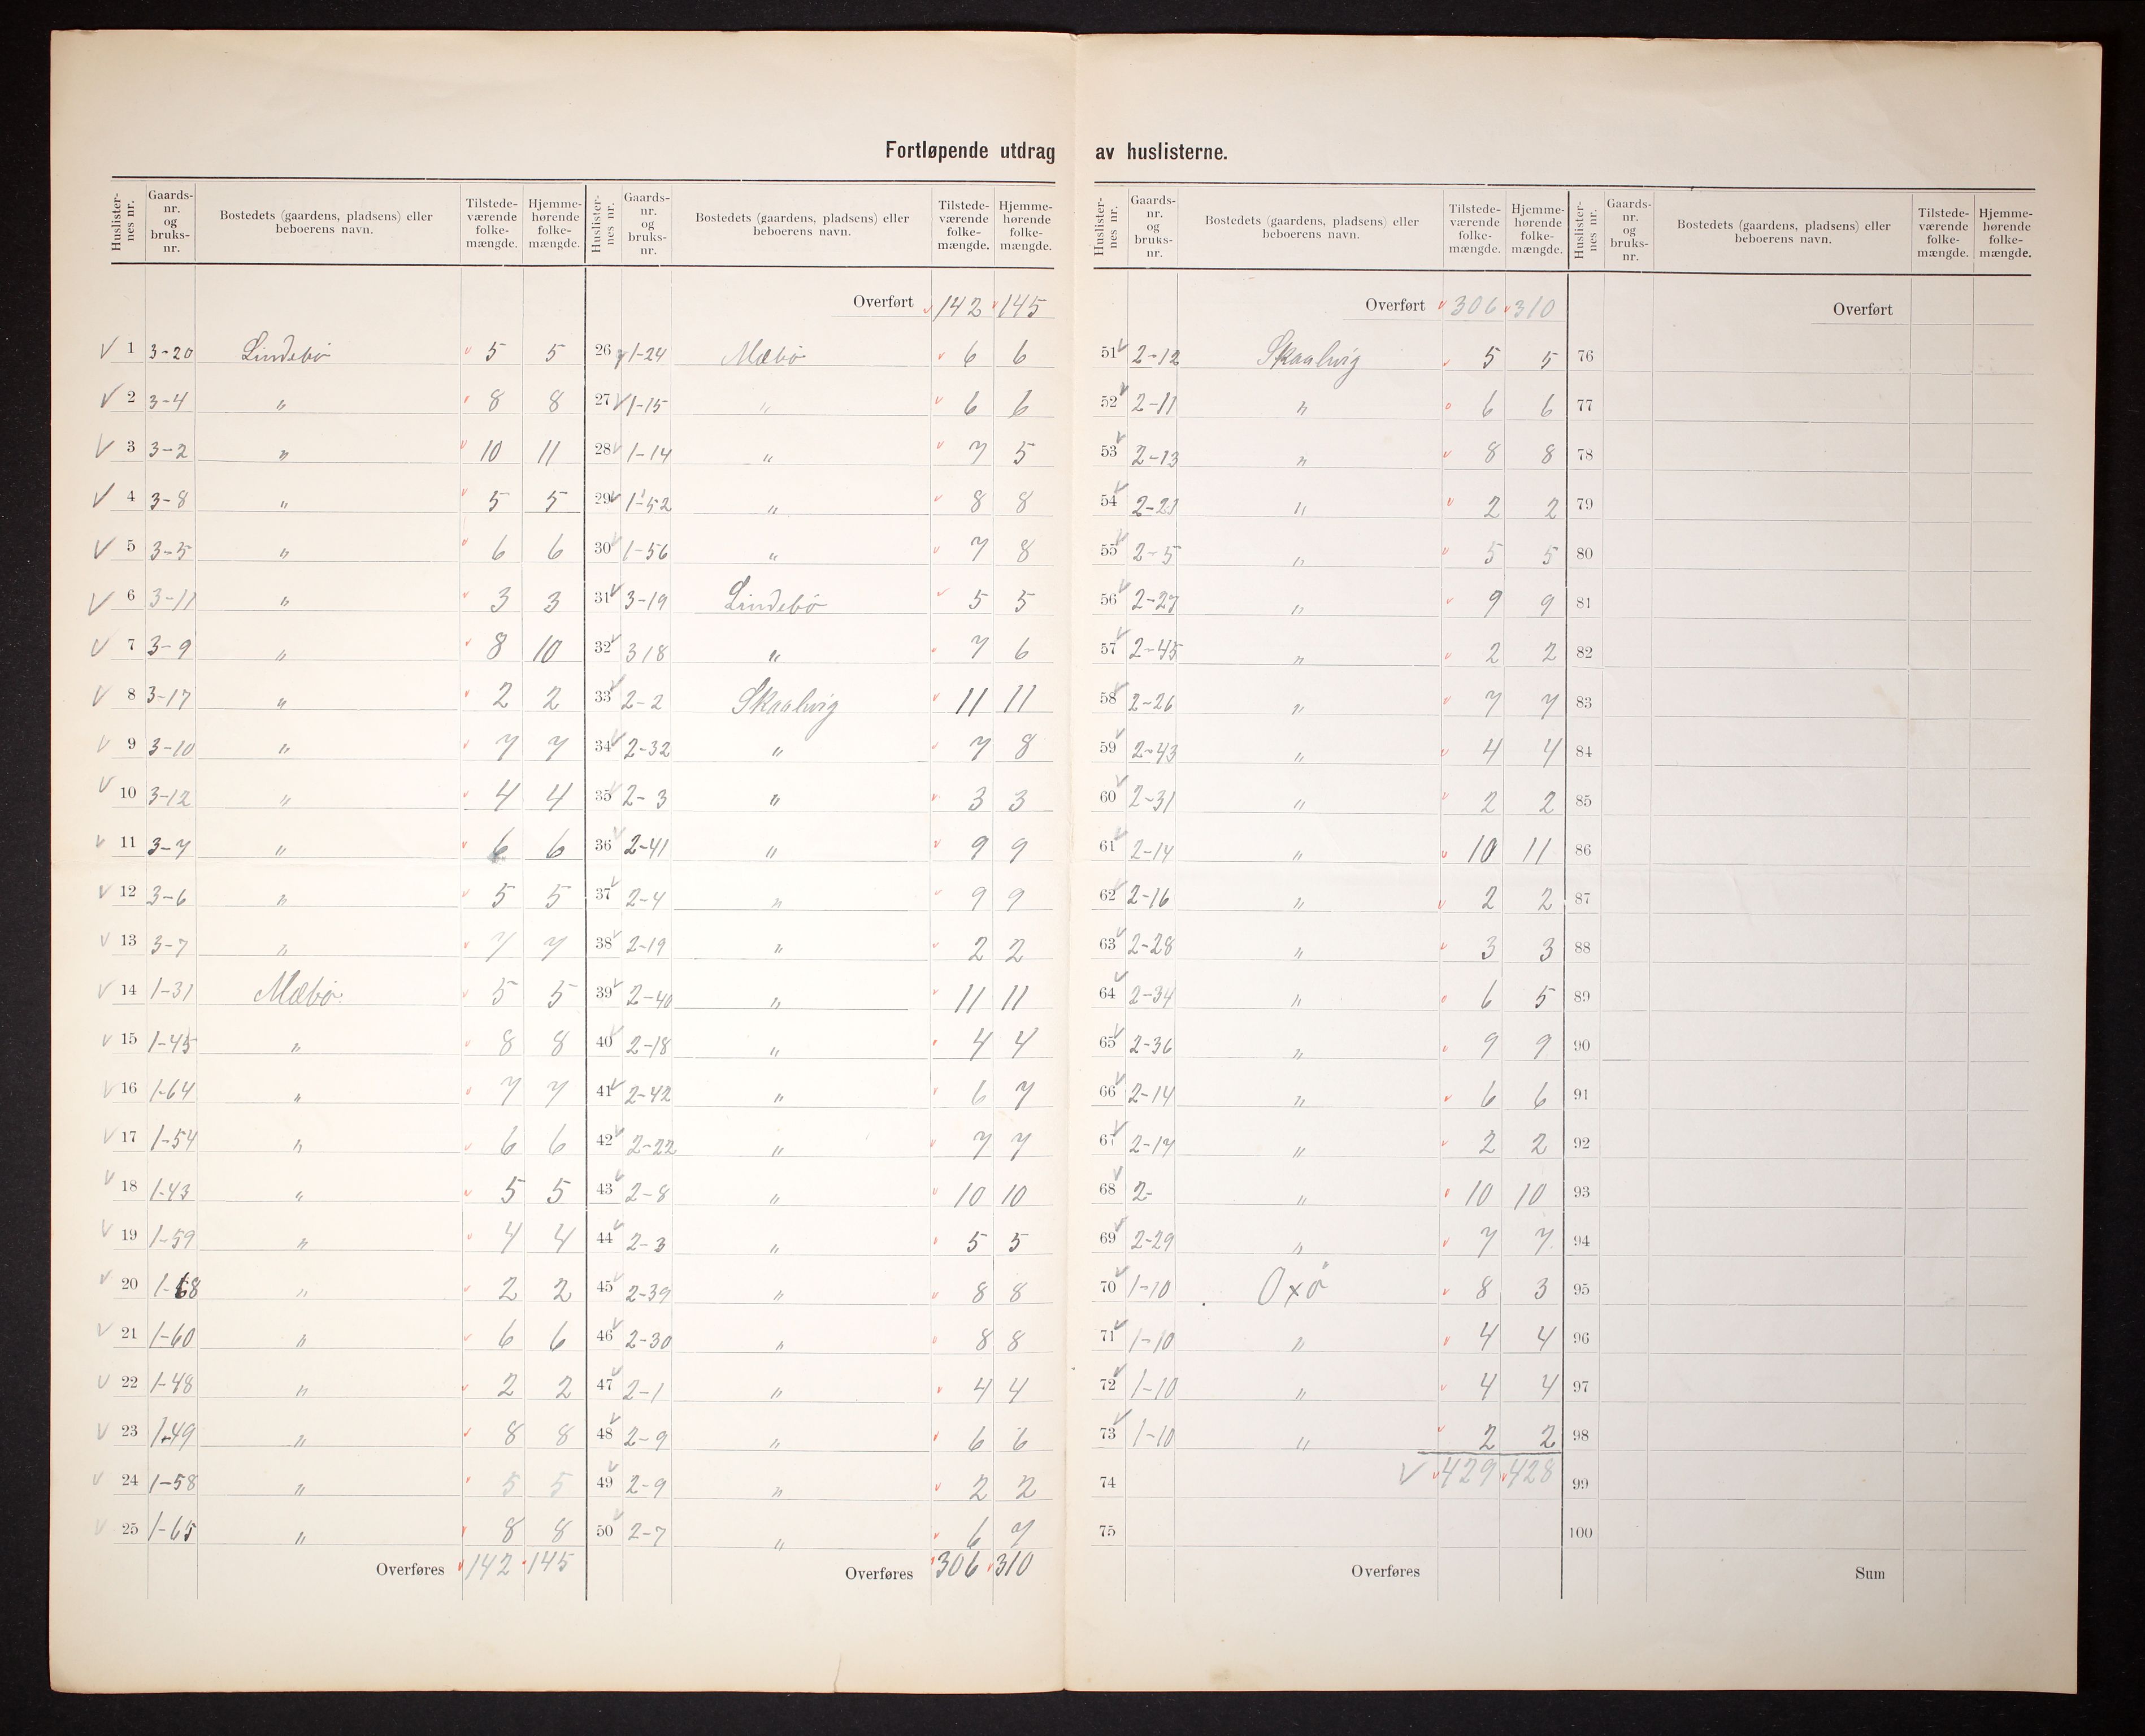 Fortløpende utdrag av huslisterne.
Huslisternes nr. Gaards-nr. og bruks-nr. Bostedets (gaardens, pladsens) eller beboerens navn. Tilstedeværende folkemængde. Hjemmehørende folkemængde.
1 3-20 Lindebø 5 5
2 3-4 " 8 8
3 3-2 " 10 11
4 3-8 " 5 5
5 3-5 " 6 6
6 3-11 " 3 3
7 3-9 " 8 10
8 3-17 " 2 2
9 3-10 " 7 7
10 3-12 " 4 4
11 3-7 " 6 6
12 3-6 " 5 5
13 3-7 " 7 7
14 1-31 Mæbø 5 5
15 1-45 " 8 8
16 1-64 " 7 7
17 1-54 " 6 6
18 1-43 " 5 5
19 1-59 " 4 4
20 1-68 " 2 2
21 1-60 " 6 6
22 1-48 " 2 2
23 1-49 " 8 8
24 1-58 " 5 5
25 1-65 " 8 8
Overføres 142 145
Huslisternes nr. Gaards-nr. og bruks-nr. Bostedets (gaardens, pladsens) eller beboerens navn. Tilstedeværende folkemængde. Hjemmehørende folkemængde.
Overført 142 145
26 1-24 Mæbø 6 6
27 1-15 " 6 6
28 1-14 " 7 5
29 1-52 " 8 8
30 1-56 " 7 8
31 3-19 Lindebø 5 5
32 318 " 7 6
33 2-2 Skaalvig 11 11
34 2-32 " 7 8
35 2-3 " 3 3
36 2-41 " 9 9
37 2-4 " 9 9
38 2-19 " 2 2
39 2-40 " 11 11
40 2-18 " 4 4
41 2-42 " 6 7
42 2-22 " 7 7
43 2-8 " 10 10
44 2-3 " 5 5
45 2-39 " 8 8
46 2-30 " 8 8
47 2-1 " 4 4
48 2-9 " 6 6
49 2-9 " 2 2
50 2-7 " 6 7
Overføres 306 310
Huslisternes nr. Gaards-nr. og bruks-nr. Bostedets (gaardens, pladsens) eller beboerens navn. Tilstedeværende folkemængde. Hjemmehørende folkemængde.
Overført 306 310
51 2-12 Skaalvig 5 5
52 2-11 " 6 6
53 2-13 " 8 8
54 2-21 " 2 2
55 2-5 " 5 5
56 2-27 " 9 9
57 2-45 " 2 2
58 2-26 " 7 7
59 2-43 " 4 4
60 2-31 " 2 2
61 2-14 " 10 11
62 2-16 " 2 2
63 2-28 " 3 3
64 2-34 " 6 5
65 2-36 " 9 9
66 2-14 " 6 6
67 2-17 " 2 2
68 2- " 10 10
69 2-29 " 7 7
70 1-10 Oxø 8 3
71 1-10 " 4 4
72 1-10 " 4 4
73 1-10 " 2 2
74 429 428
75
Overføres
Huslisternes nr. Gaards-nr. og bruks-nr. Bostedets (gaardens, pladsens) eller beboerens navn. Tilstedeværende folkemængde. Hjemmehørende folkemængde.
Overført
76
77
78
79
80
81
82
83
84
85
86
87
88
89
90
91
92
93
94
95
96
97
98
99
100
Sum